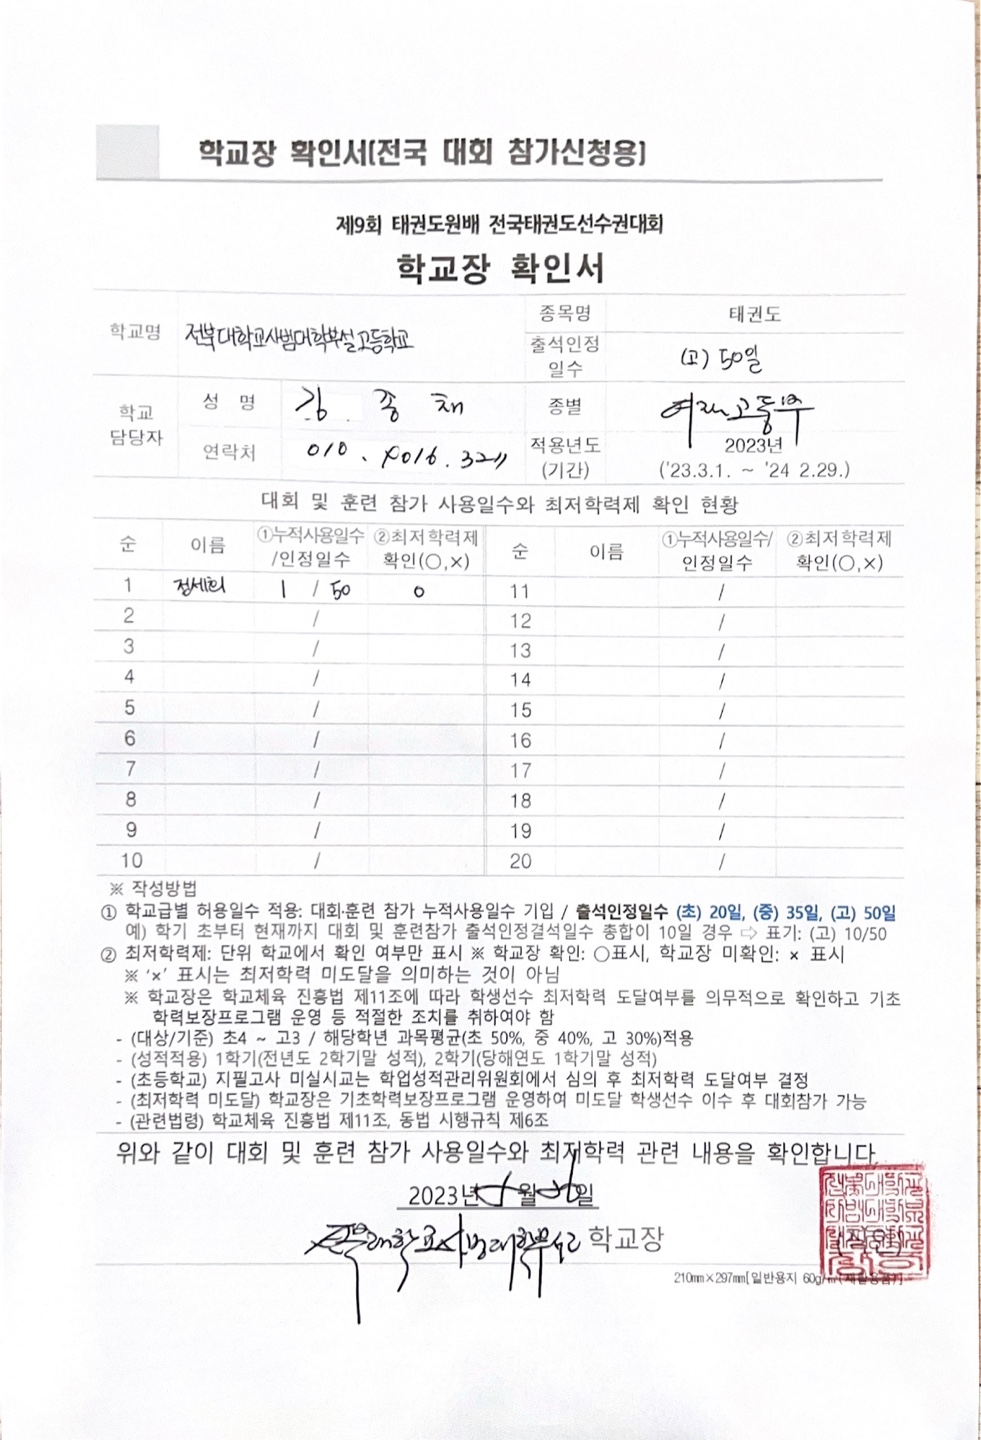 학교장 확인서(전국 대회 참가신청용)
제9회 태권도원배 전국태권도선수권대회
학교장 확인서
학교명 전북대학교사범대학부설고등학교 종목명 태권도
출석인정 일수 (고) 50일
학교 담당자 성 명 김 종 채 종별 여자고등부
연락처 010. 적용년도 (기간) 2023년 ('23.3.1. ~ '24 2.29.)
대회 및 훈련 참가 사용일수와 최저학력제 확인 현황
순 이름 ①누적사용일수/인정일수 ②최저학력제 확인(○,×) 순 이름 ①누적사용일수/인정일수 ②최저학력제 확인(○,×)
1 정세희 1 / 50 ○ 11 /
2 / 12 /
3 / 13 /
4 / 14 /
5 / 15 /
6 / 16 /
7 / 17 /
8 / 18 /
9 / 19 /
10 / 20 /
※ 작성방법
① 학교급별 허용일수 적용: 대회·훈련 참가 누적사용일수 기입 / 출석인정일수 (초) 20일, (중) 35일, (고) 50일
예) 학기 초부터 현재까지 대회 및 훈련참가 출석인정결석일수 총합이 10일 경우 ⇨ 표기: (고) 10/50
② 최저학력제: 단위 학교에서 확인 여부만 표시 ※ 학교장 확인: ○표시, 학교장 미확인: × 표시
※ '×' 표시는 최저학력 미도달을 의미하는 것이 아님
※ 학교장은 학교체육 진흥법 제11조에 따라 학생선수 최저학력 도달여부를 의무적으로 확인하고 기초
학력보장프로그램 운영 등 적절한 조치를 취하여야 함
- (대상/기준) 초4 ~ 고3 / 해당학년 과목평균(초 50%, 중 40%, 고 30%)적용
- (성적적용) 1학기(전년도 2학기말 성적), 2학기(당해연도 1학기말 성적)
- (초등학교) 지필고사 미실시교는 학업성적관리위원회에서 심의 후 최저학력 도달여부 결정
- (최저학력 미도달) 학교장은 기초학력보장프로그램 운영하여 미도달 학생선수 이수 후 대회참가 가능
- (관련법령) 학교체육 진흥법 제11조, 동법 시행규칙 제6조
위와 같이 대회 및 훈련 참가 사용일수와 최저학력 관련 내용을 확인합니다.
2023년 월 일
전북대학교사범대학부설고 학교장
210mm×297mm[일반용지 60g/㎡(재활용품)]